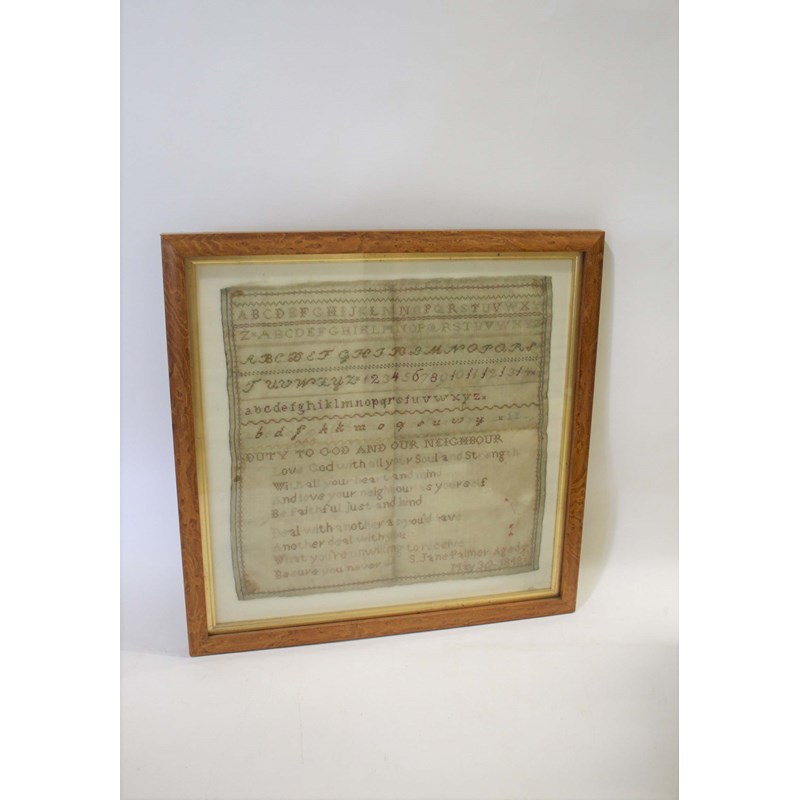 ABCDEFGHIJKLMNOPQRSTUVWX
Z ABCDEFGHIKLMNOPQRSTUVWXYZ
ABCDEFGHIKLMNOPQRS
TUVWXYZ 1 2 3 4 5 6 7 8 9 10 11 12 13 14
abcdefghiklmnopqrsfuvwxyz
b d f h k m o q s u w y
DUTY TO GOD AND OUR NEIGHBOUR
Love God with all your Soul and Strength
With all your heart and mind
And love your neighbour as yourself
Be faithful Just and kind
Deal with another as you'd have
Another deal with you
What you're unwilling to receive
Be sure you never S Jane Palmer Aged
May